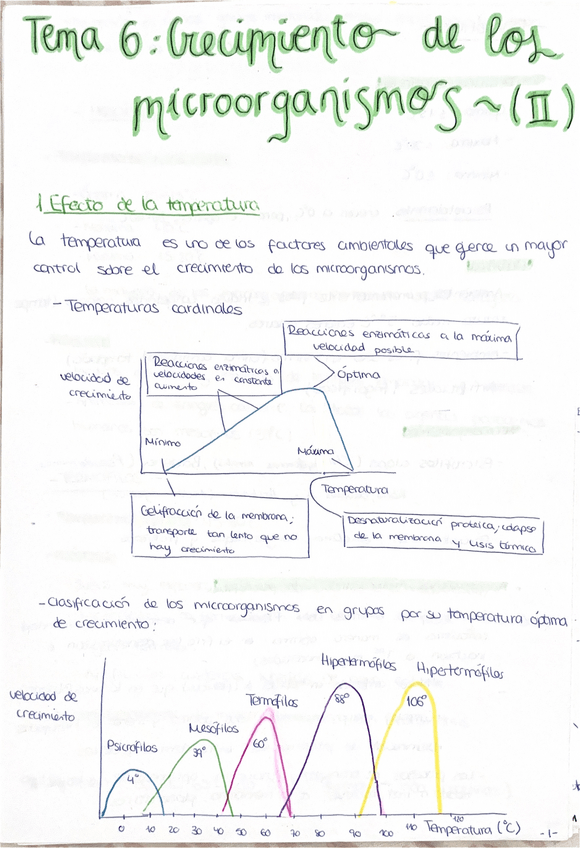 Tema 6: Crecimiento de los
microorganismos ~ (II)
1. Efecto de la temperatura
La temperatura es uno de los factores ambientales que ejerce un mayor
control sobre el crecimiento de los microorganismos.
- Temperaturas cardinales
Reacciones enzimáticas a la máxima
velocidad posible
velocidad de
crecimiento
Reacciones enzimáticas a
velocidades en constante
aumento
Óptima
Mínimo
Máxima
Temperatura
Gelifracción de la membrana;
transporte tan lento que no
hay crecimiento
Desnaturalización proteica; colapso
de la membrana y lisis térmica
- Clasificación de los microorganismos en grupos por su temperatura óptima
de crecimiento:
velocidad de
crecimiento
Psicrófilos
4°
Mesófilos
39°
Termófilos
60°
Hipertermófilos
88°
Hipertermófilos
106°
0 10 20 30 40 50 60 70 80 90 100 110 120
Temperatura (°C)
-1-